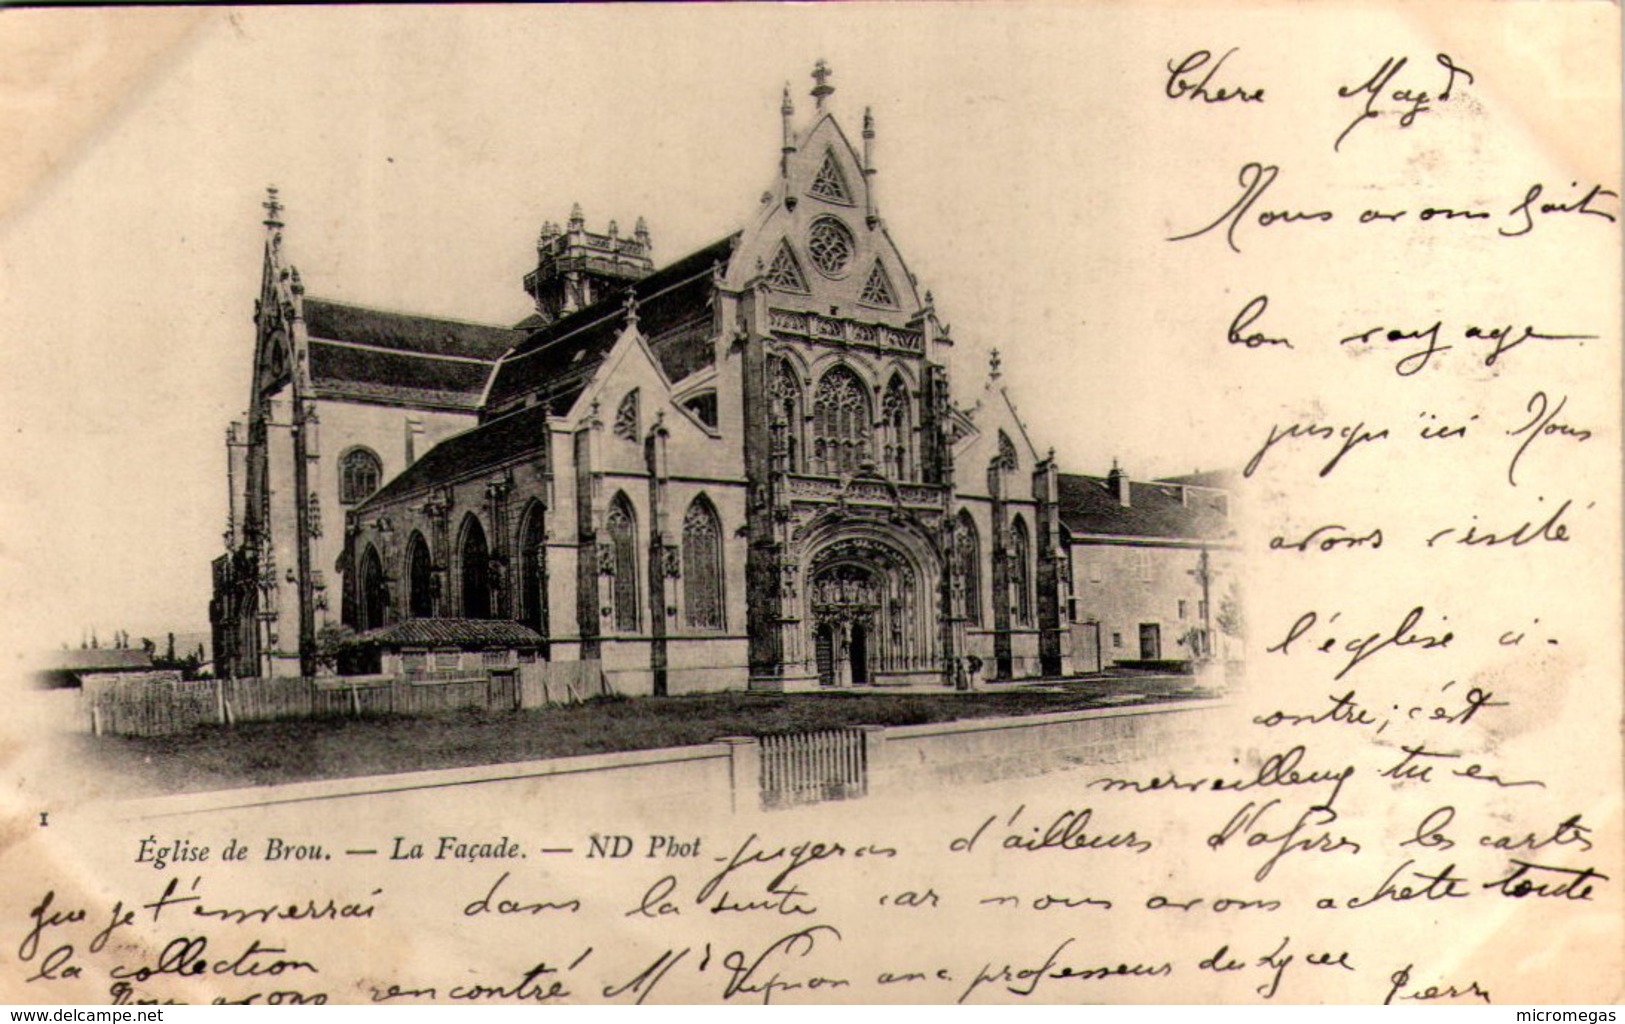 Chere Magd
Nous avons fait
bon voyage
jusqu'ici Nous
avons visité
l'église ci-
contre; c'est
merveilleux tu en
jugeras d'ailleurs d'après les cartes
que je t'enverrai dans la suite car nous avons acheté toute
la collection
Nous avons rencontré Mr Vignon anc professeur du Lycée
Pierre
1
Église de Brou. — La Façade. — ND Phot
delcampe.net
micromegas